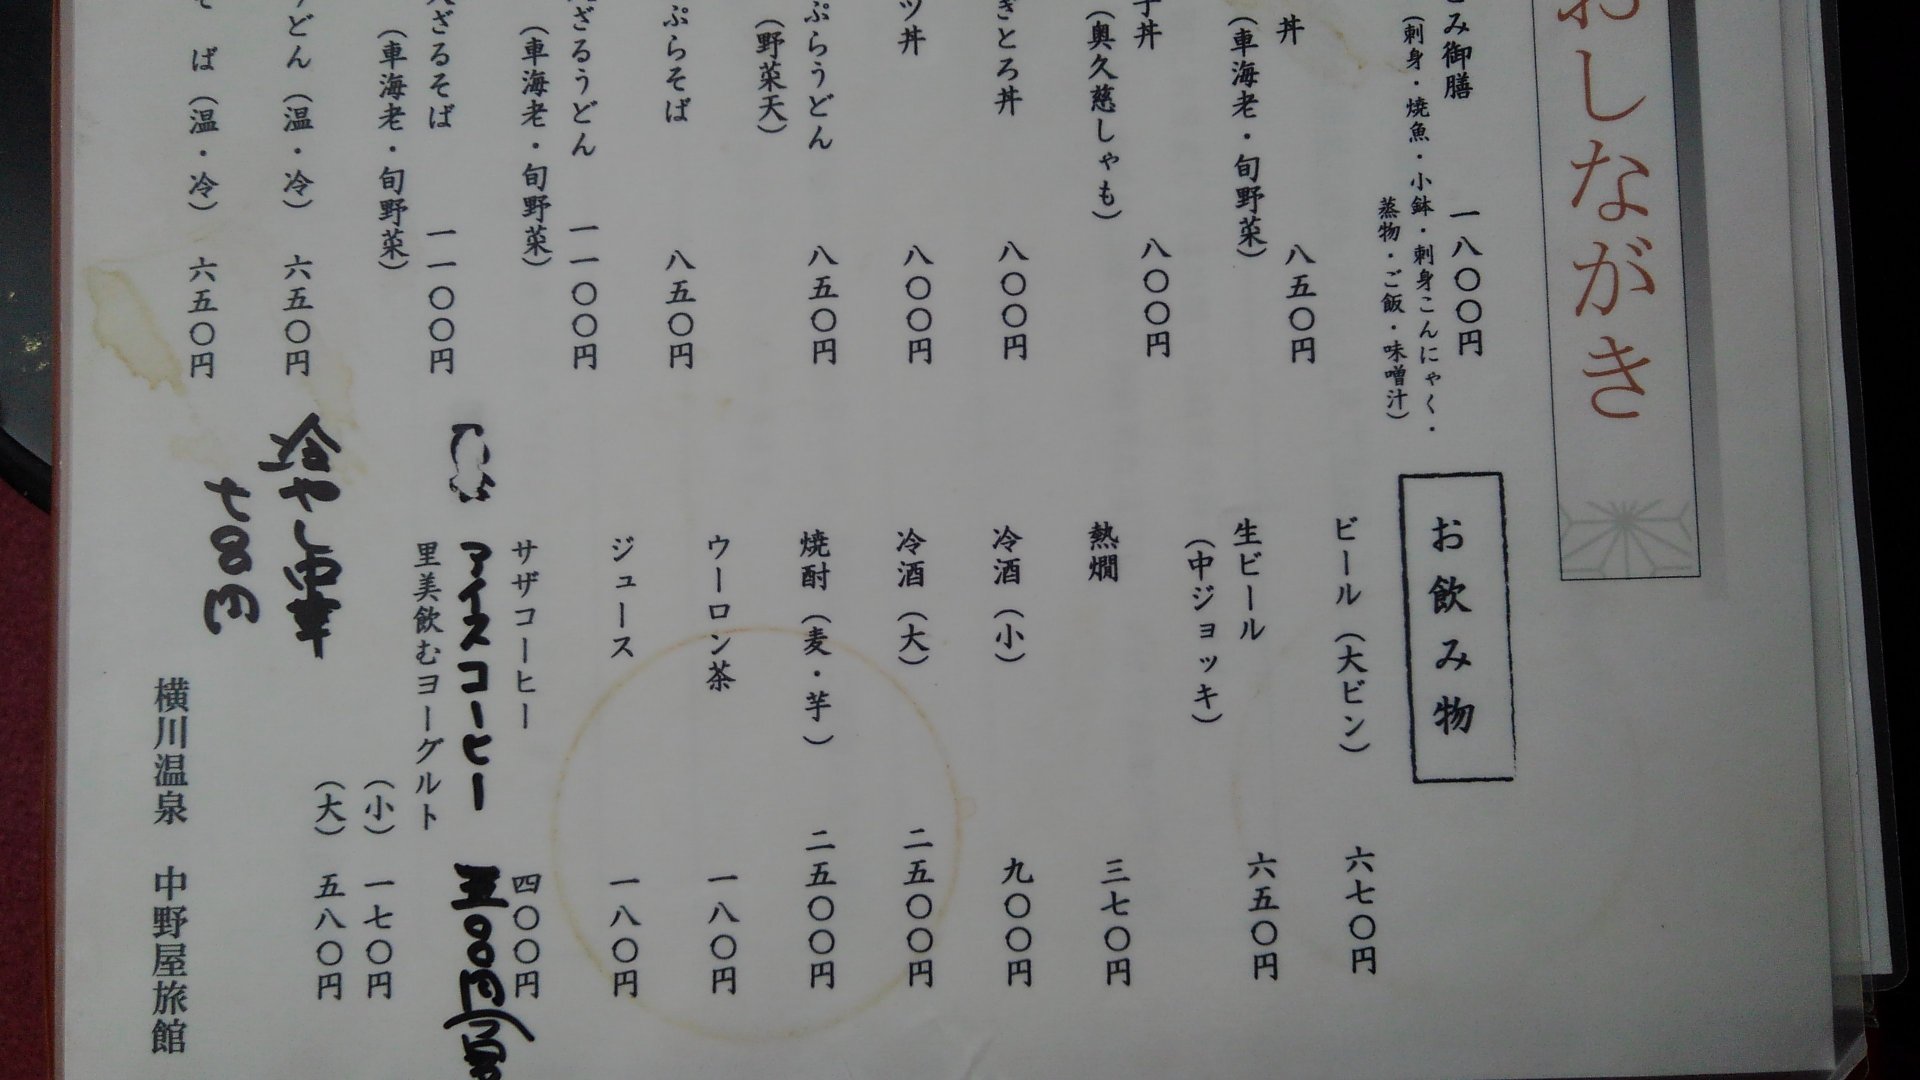 おしながき
み御膳 一八〇〇円
(刺身・焼魚・小鉢・刺身こんにゃく・
蒸物・ご飯・味噌汁)
丼 八五〇円
(車海老・旬野菜)
子丼 八〇〇円
(奥久慈しゃも)
きとろ丼 八〇〇円
ツ丼 八〇〇円
ぷらうどん 八五〇円
(野菜天)
ぷらそば 八五〇円
ざるうどん 一一〇〇円
(車海老・旬野菜)
ざるそば 一一〇〇円
(車海老・旬野菜)
うどん(温・冷) 六五〇円
そば(温・冷) 六五〇円
冷やし中華
七〇〇円
お飲み物
ビール(大ビン) 六七〇円
生ビール 六五〇円
(中ジョッキ)
熱燗 三七〇円
冷酒(小) 九〇〇円
冷酒(大) 二五〇〇円
焼酎(麦・芋) 二五〇〇円
ウーロン茶 一八〇円
ジュース 一八〇円
サザコーヒー 四〇〇円
アイスコーヒー 五〇〇円
里美飲むヨーグルト
(小) 一七〇円
(大) 五八〇円
横川温泉 中野屋旅館